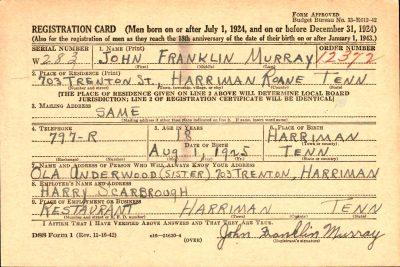 Form Approved
Budget Bureau No. 33-R012-42
REGISTRATION CARD (Men born on or after July 1, 1924, and on or before December 31, 1924)
(Also for the registration of men as they reach the 18th anniversary of the date of their birth on or after January 1, 1943.)
SERIAL NUMBER 1. Name (Print) ORDER NUMBER
W 283 JOHN FRANKLIN MURRAY 12372
(First) (Middle) (Last)
2. Place of Residence (Print)
703 TRENTON ST., HARRIMAN ROANE TENN
(Number and street) (Town, township, village, or city) (County) (State)
[THE PLACE OF RESIDENCE GIVEN ON LINE 2 ABOVE WILL DETERMINE LOCAL BOARD
JURISDICTION; LINE 2 OF REGISTRATION CERTIFICATE WILL BE IDENTICAL]
3. Mailing Address
SAME
[Mailing address if other than place indicated on line 2. If same, insert word same]
4. Telephone 5. Age in Years 6. Place of Birth
797-R 18 HARRIMAN
Date of Birth (Town or county)
Aug 1 1925 TENN
(Exchange) (Number) (Mo.) (Day) (Yr.) (State or country)
7. Name and Address of Person Who Will Always Know Your Address
OLA UNDERWOOD (SISTER) 703 TRENTON, HARRIMAN
8. Employer's Name and Address
HARRY SCARBROUGH
9. Place of Employment or Business
RESTAURANT HARRIMAN TENN
(Number and street or R. F. D. number) (Town) (County) (State)
I Affirm That I Have Verified Above Answers and That They Are True.
DSS Form 1 (Rev. 11-16-42) (over) John Franklin Murray
(Registrant's signature)